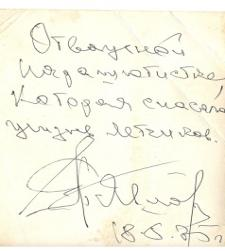 Отважной
парашютистке
которая спасала
жизнь летчиков.
18.5.85 г